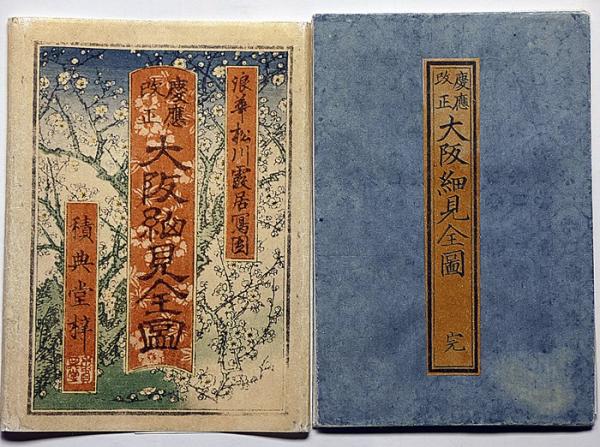 浪華松川霞居寫
慶應
改正
大阪細見全圖
積典堂梓
慶應
改正
大阪細見全圖
完